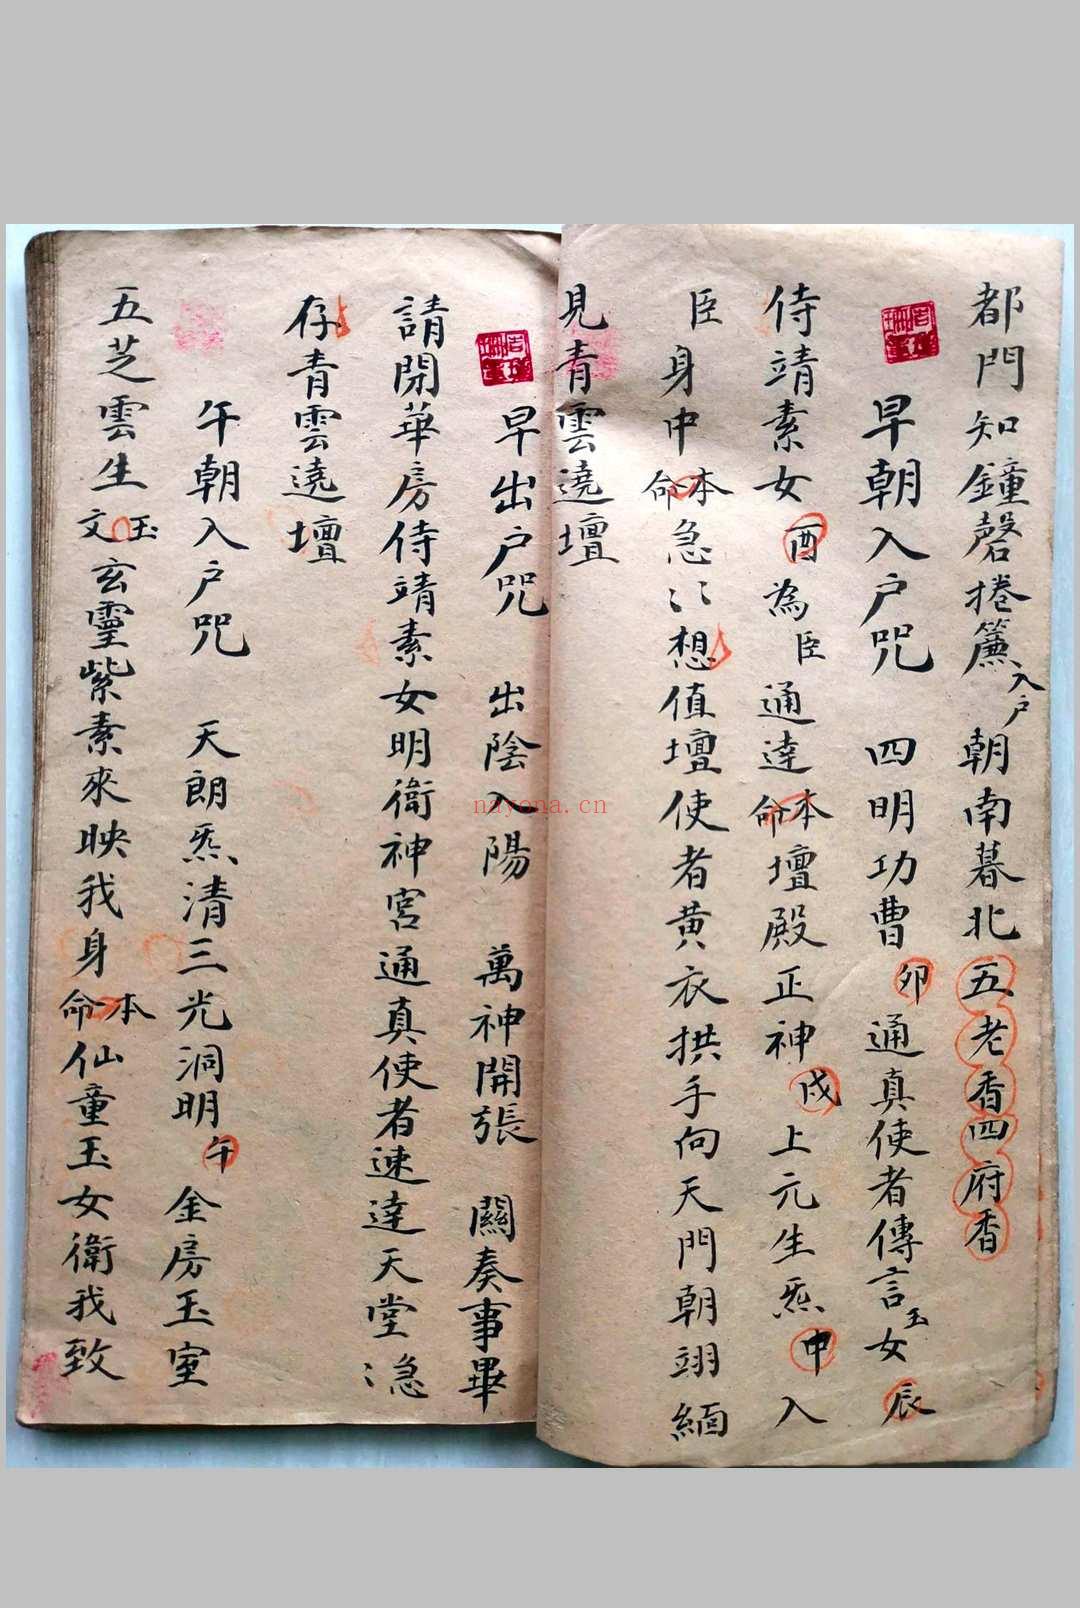 都門知鐘磬捲簾入户朝南暮北五老香四府香
早朝入户咒 四明功曹卯通真使者傳言玉女辰
侍靖素女酉為臣通達本命壇殿正神戌上元生炁申入
臣身中本命急〻想值壇使者黄衣拱手向天門朝翊緬
見青雲遶壇
早出户咒 出陰入陽 萬神開張 關奏事畢
請閉華房侍靖素女明衛神宮通真使者速達天堂急
存青雲遶壇
午朝入户咒 天朗炁清三光洞明午金房玉室
五芝雲生玉文玄靈紫素來映我身本命仙童玉女衛我致
nayona.cn